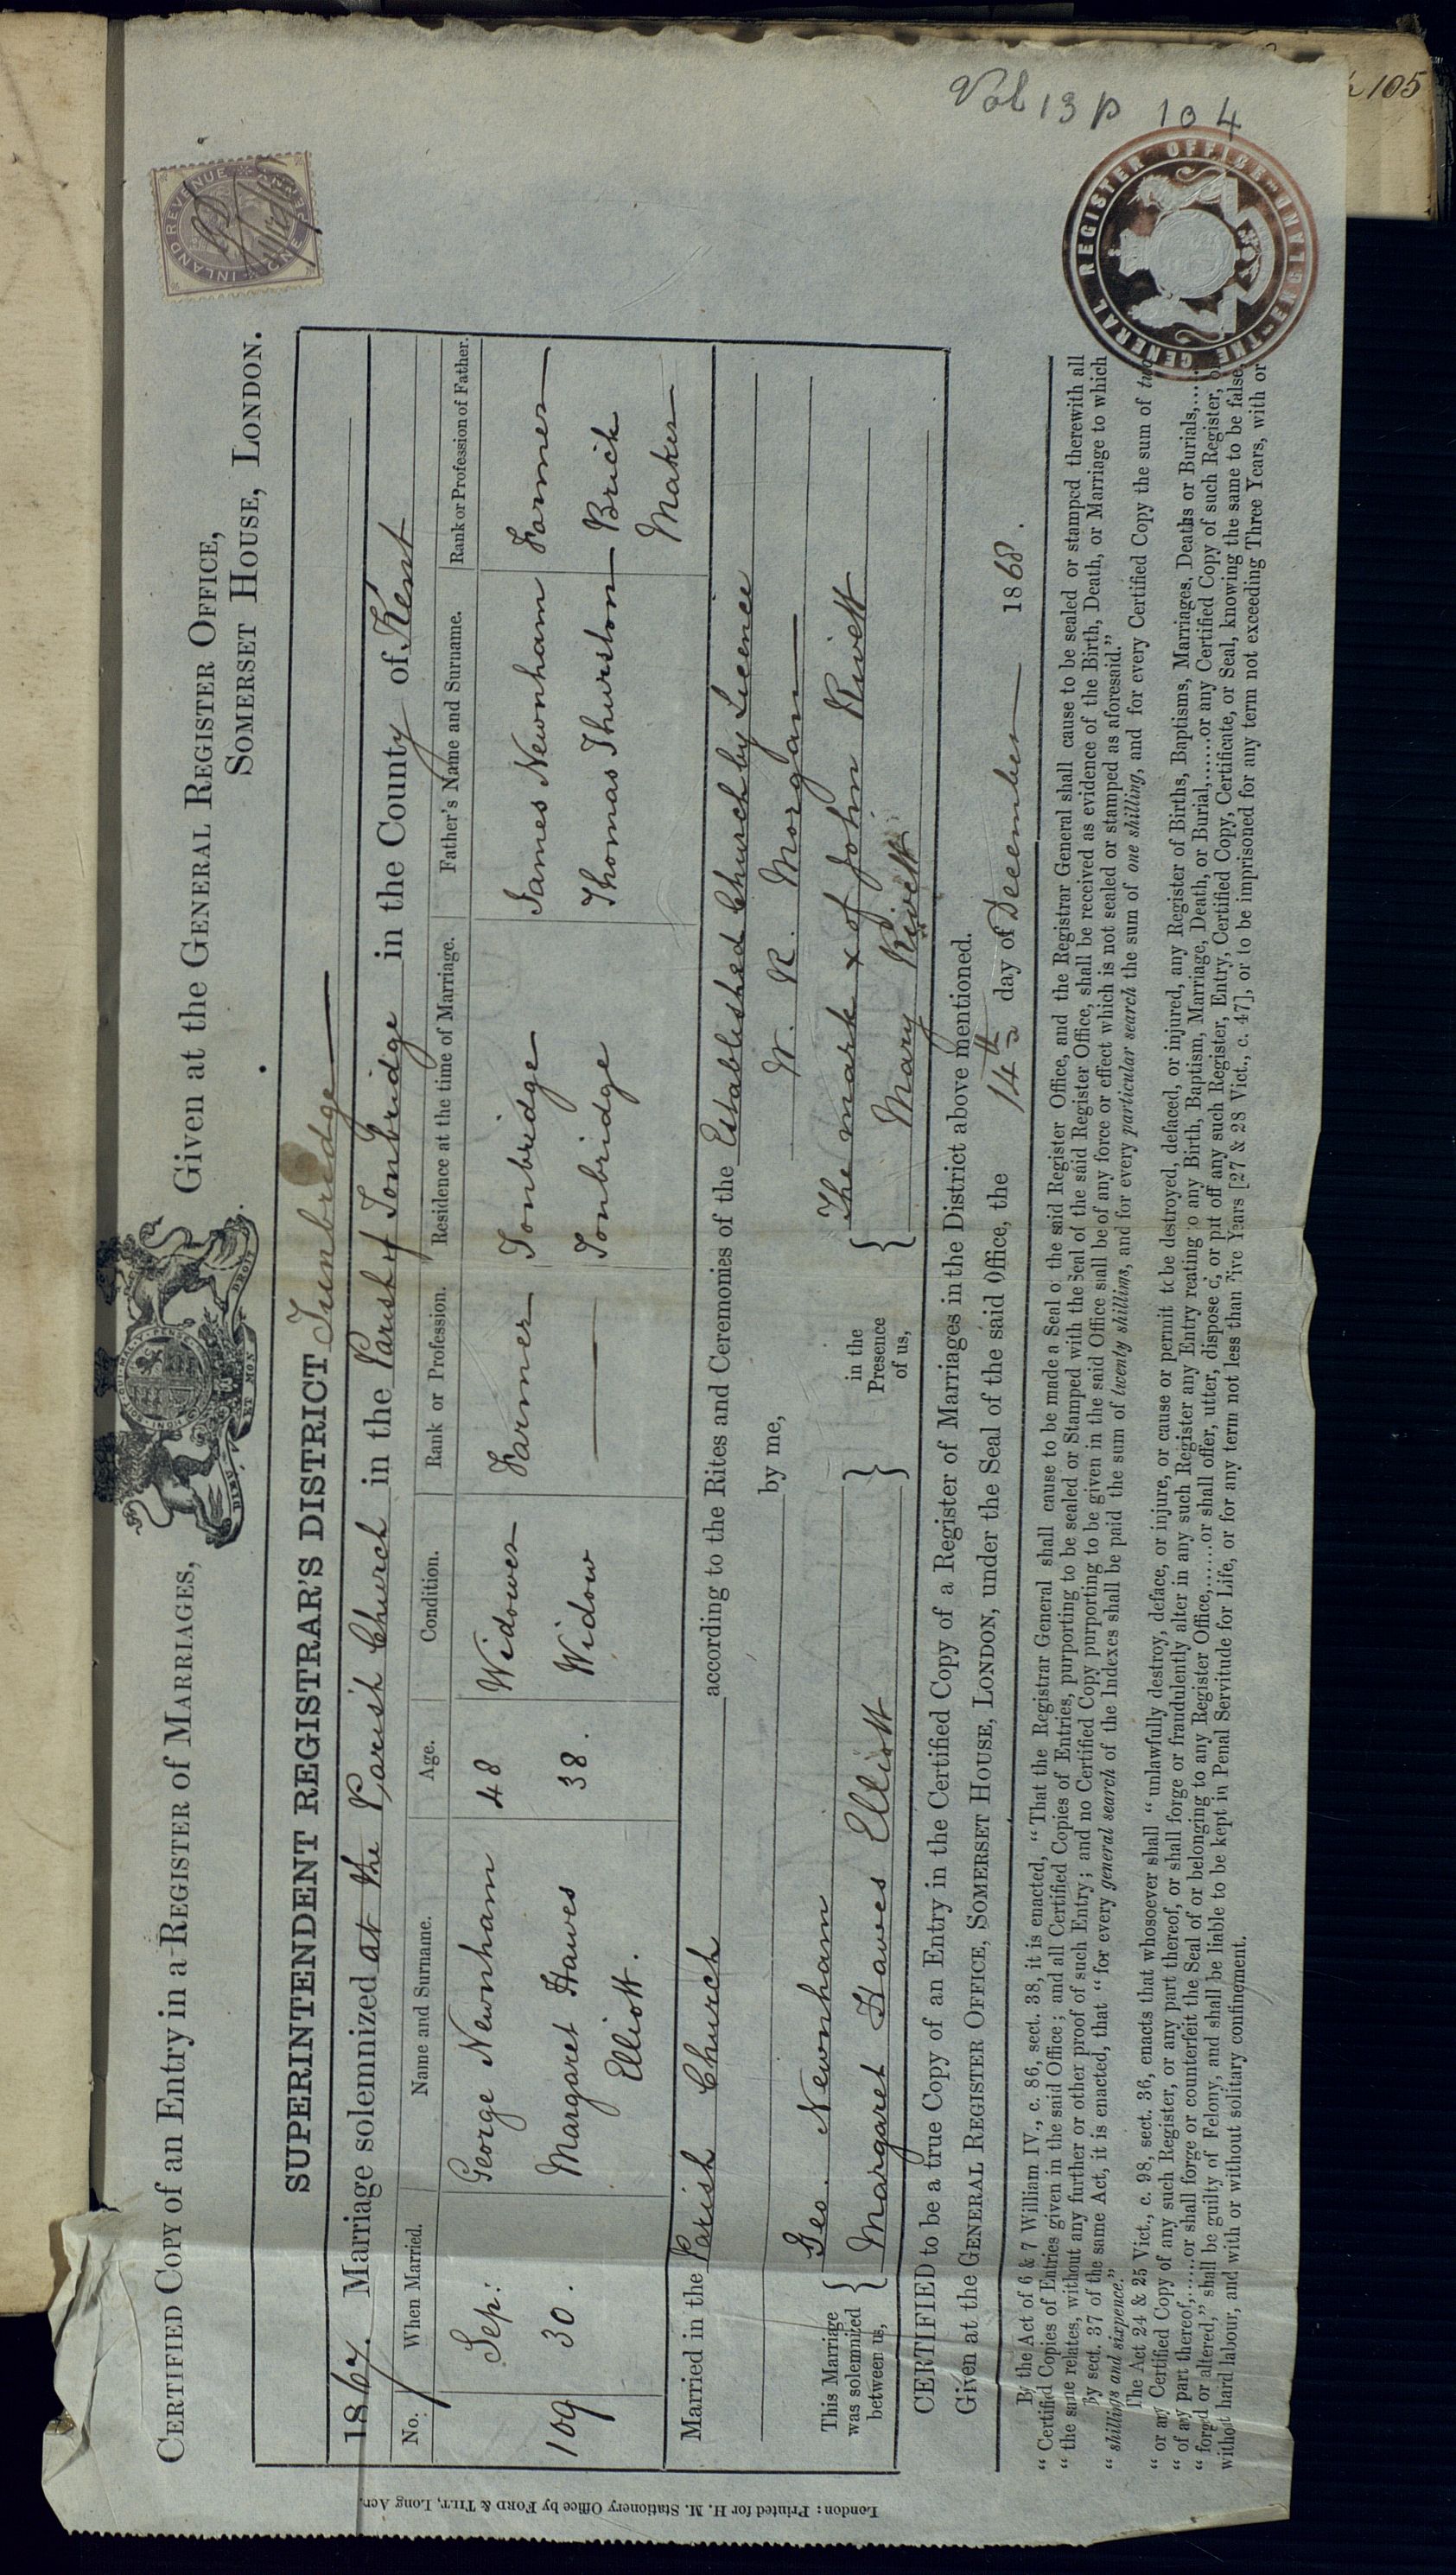 CERTIFIED COPY of an Entry in a REGISTER OF MARRIAGES,
Given at the GENERAL REGISTER OFFICE,
SOMERSET HOUSE, LONDON.
DIEU ET MON DROIT
INLAND REVENUE
ONE PENNY
SUPERINTENDENT REGISTRAR'S DISTRICT Tunbridge
1867. Marriage solemnized at the Parish Church in the Parish of Tonbridge in the County of Kent
No. When Married. Name and Surname. Age. Condition. Rank or Profession. Residence at the time of Marriage. Father's Name and Surname. Rank or Profession of Father.
109 Sep: 30. George Newnham 48 Widower Farmer Tonbridge James Newnham Farmer
Margaret Hawes Elliott. 38. Widow — Tonbridge Thomas Thurston Brick Maker
Married in the Parish Church according to the Rites and Ceremonies of the Established Church by Licence
by me, W. R. Morgan
This Marriage was solemnized between us, { Geo. Newnham } in the Presence of us, { The mark x of John Rivett
Margaret Hawes Elliott Mary Rivett
CERTIFIED to be a true Copy of an Entry in the Certified Copy of a Register of Marriages in the District above mentioned.
Given at the GENERAL REGISTER OFFICE, SOMERSET HOUSE, LONDON, under the Seal of the said Office, the 14th day of December 1868.
By the Act of 6 & 7 William IV., c. 86, sect. 38, it is enacted, "That the Registrar General shall cause to be made a Seal of the said Register Office, and the Registrar General shall cause to be sealed or stamped therewith all
"Certified Copies of Entries given in the said Office; and all Certified Copies of Entries, purporting to be sealed or Stamped with the Seal of the said Register Office, shall be received as evidence of the Birth, Death, or Marriage to which
"the same relates, without any further or other proof of such Entry; and no Certified Copy purporting to be given in the said Office shall be of any force or effect which is not sealed or stamped as aforesaid."
By sect. 37 of the same Act, it is enacted, that "for every general search of the Indexes shall be paid the sum of twenty shillings, and for every particular search the sum of one shilling, and for every Certified Copy the sum of two
"shillings and sixpence."
The Act 24 & 25 Vict., c. 98, sect. 36, enacts that whosoever shall "unlawfully destroy, deface, or injure, or cause or permit to be destroyed, defaced, or injured, any Register of Births, Baptisms, Marriages, Deaths or Burials,....
"or any Certified Copy of any such Register, or any part thereof, or shall forge or fraudulently alter in any such Register any Entry relating to any Birth, Baptism, Marriage, Death, or Burial,......or any Certified Copy of such Register, or
"of any part thereof,......or shall forge or counterfeit the Seal of or belonging to any Register Office,......or shall offer, utter, dispose of, or put off any such Register, Entry, Certified Copy, Certificate, or Seal, knowing the same to be false,
"forged or altered," shall be guilty of Felony, and shall be liable to be kept in Penal Servitude for Life, or for any term not less than Five Years [27 & 28 Vict., c. 47], or to be imprisoned for any term not exceeding Three Years, with or
without hard labour, and with or without solitary confinement.
London: Printed for H. M. Stationery Office by FORD & TILT, Long Acr.
THE GENERAL REGISTER OFFICE ENGLAND
Vol 13 p 104
105